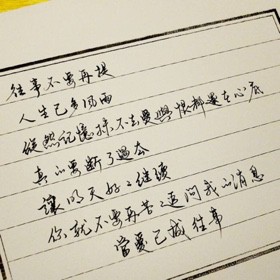 往事不要再提
人生已多风雨
縱然記憶抹不去愛與恨都還在心底
真的要断了過去
讓明天好々继续
你就不要再苦々追问我的消息
當愛已成往事